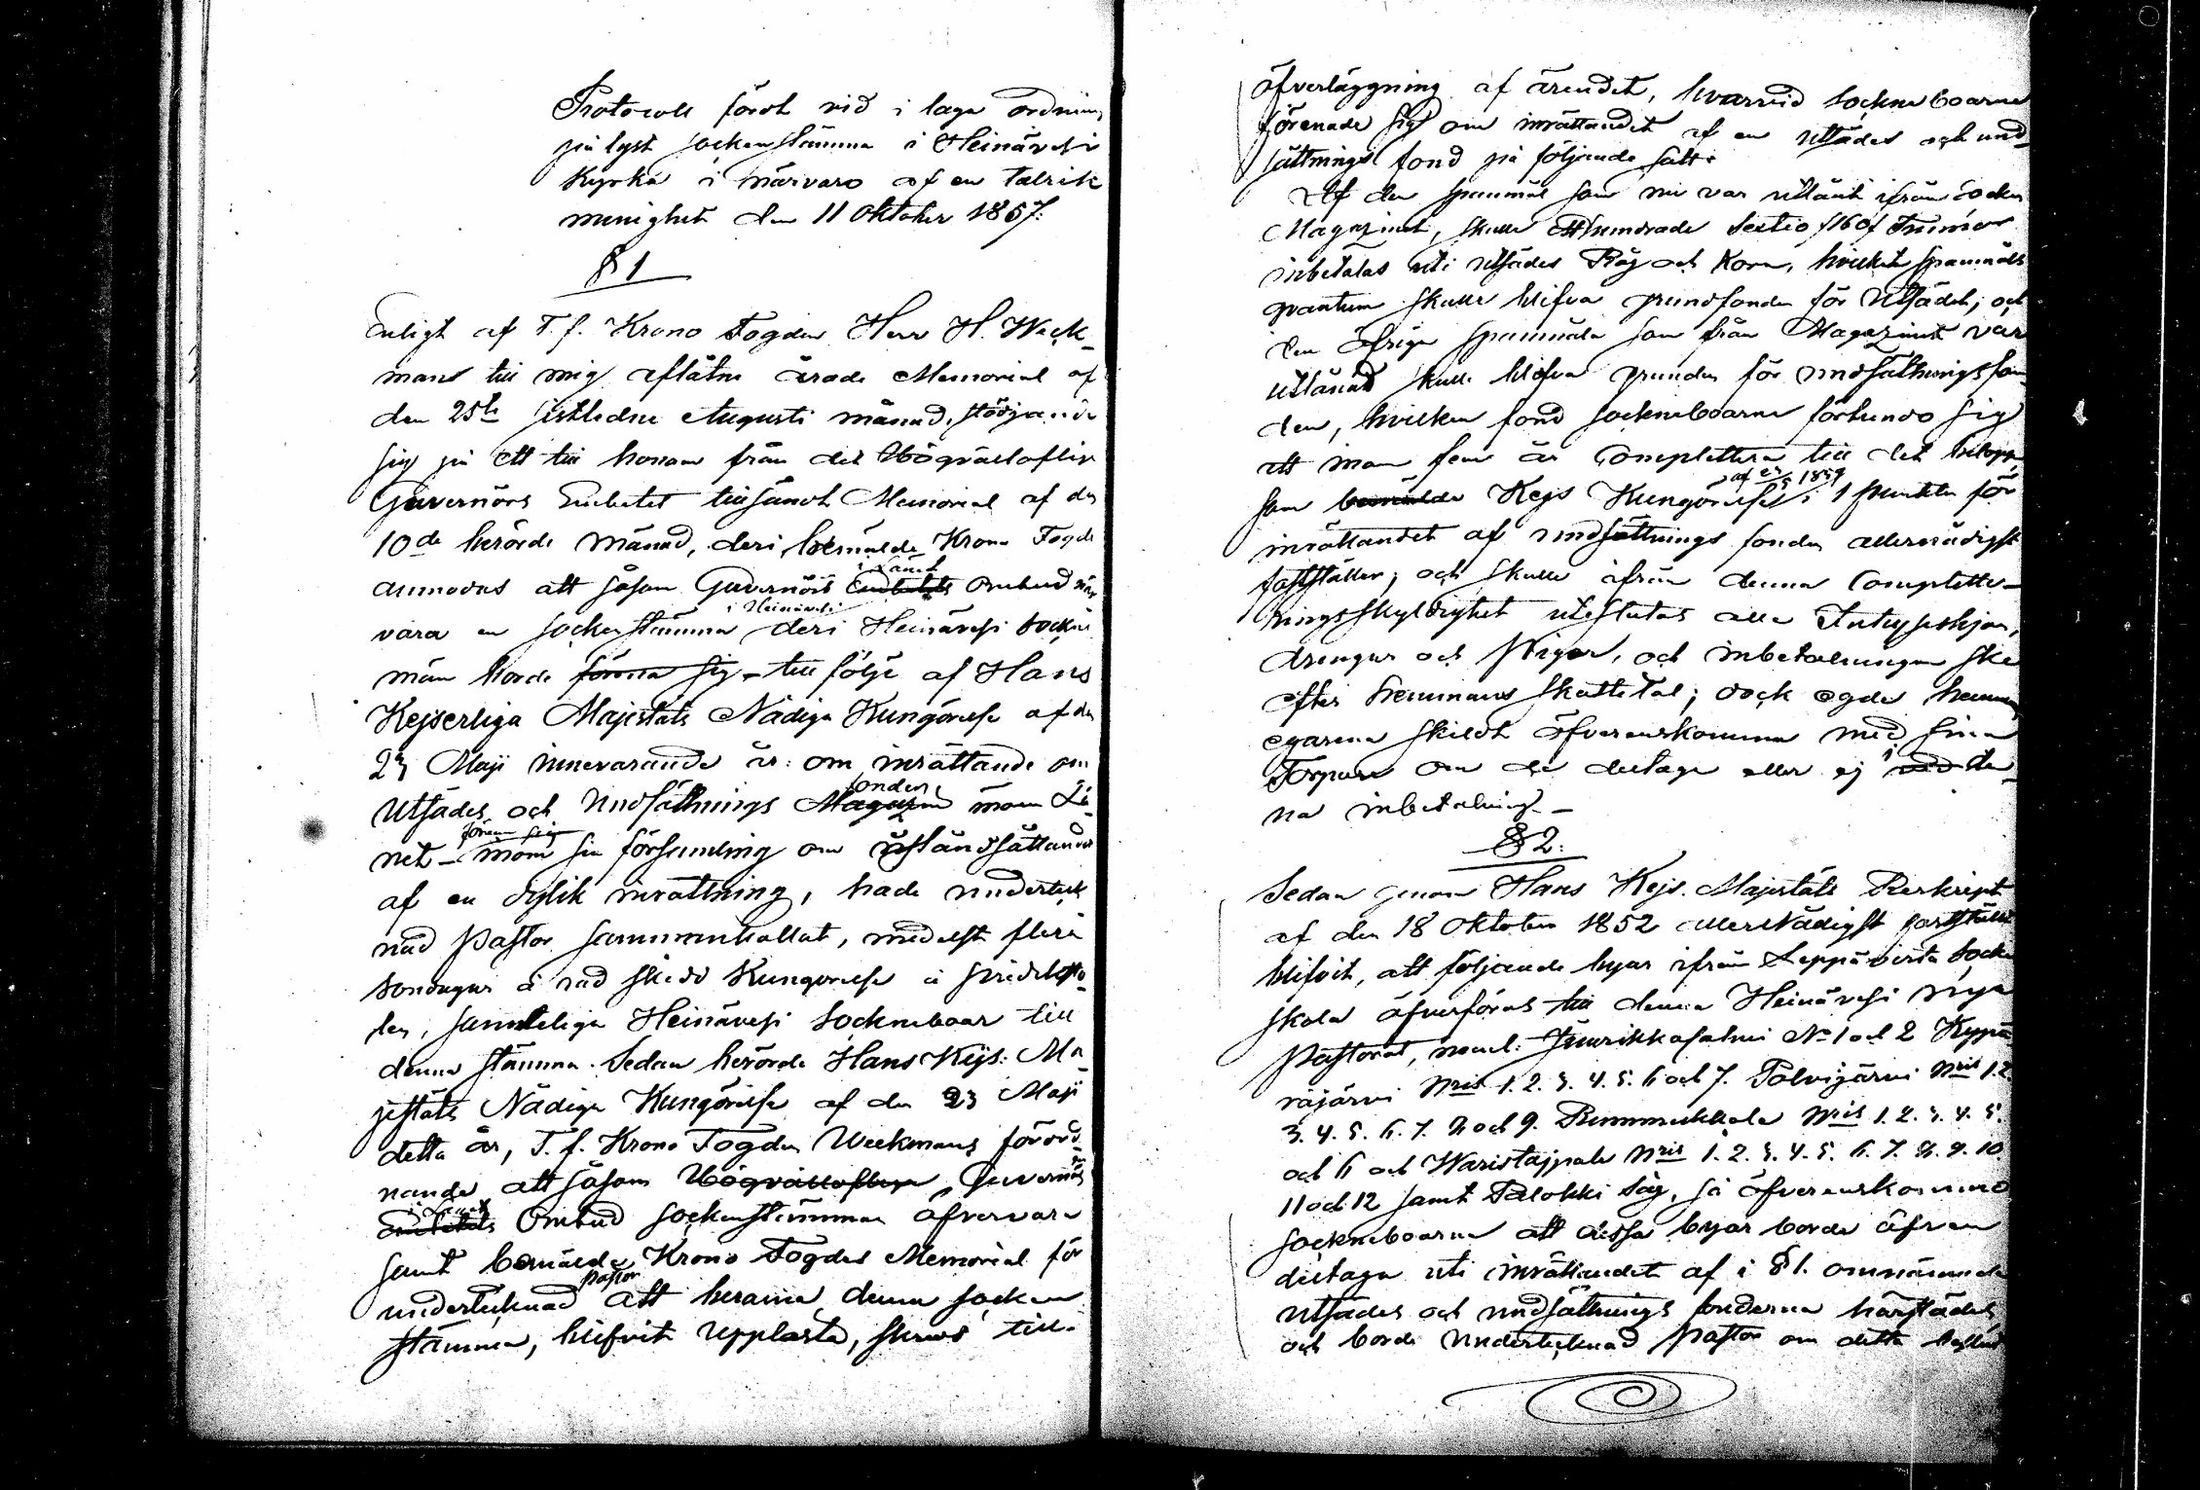 Protocoll fördt vid i laga ordning
pålyst Sockenstämma i Heinävesi
Kyrka i närvaro af en talrik
menighet den 11 Oktober 1857.
§ 1
Enligt af T. f. Krono Fogden Herr H. Weck-
mans till mig aflåtne ärade Memorial af
den 25te sistledne Augusti månad, stödjande
sig på ett till honom från det Högvälloflige
Guvernörs Embetet tillsändt Memorial af den
10de berörde månad, deri bemälde Krono Fogde
anmodas att såsom Guvernörs Embetets Ombud när-
i Länet
vara en sockenstämma deri Heinävesi Socken
i Heinävesi
män borde förena sig - till följe af Hans
Kejserliga Majestäts Nådiga Kungörelse af den
23 Maji innevarande år: om inrättande om
Utsädes och Undsättnings Magazin inom Lä-
fonder
net - inom sin församling om
förena sig
af en dylik inrättning, hade underteck-
nad Pastor sammankallat, medelst flera
Söndagar å rad skedd Kungörelse i Predikosto-
len, samteliga Heinävesi Sockneboar till
denna stämma. Sedan berörde Hans Kejs: Ma-
jestäts Nådiga Kungörelse af den 23 Maji
detta år, T. f. Krono Fogden Weckmans förord-
nande att såsom Högvälloflige Guvernörs
Embetets Ombud sockenstämman öfvervara
i Länet
samt bemälde Krono Fogdes Memorial för
undertecknad att beramma denna socken
Pastor
stämma, blifvit upplästa, skreds till
öfverläggning af ärendet, hvarvid Sockneboarne
förenade sig om inrättandet af en Utsädes och und-
sättnings fond på följande sätt:
Af den spannmål som nu var utlånt ifrån Socken
Magazinet, skulle Etthundrade Sextio /160/ Tunnor
inbetalas uti utsädes Råg och Korn, hvilket spannmåls
qvantum skulle blifva grundfonden för Utsädet; och
den öfriga spannmåla som från Magazinet var
utlånad skulle blifva grunden för undsättningsfon-
den, hvilken fond sockneboarne förbundo sig
att inom fem år complettera till det belopp,
som bemälde Kejs Kungörelse i 1 punkten för
inrättandet af undsättnings fonden allernådigst
fastställer; och skulle ifrån denna Completter-
ningsskyldighet uteslutas alla Inhyseshjon,
drengar och Pigor, och inbetalningen ske
efter hemmans skattetal; dock egde hemmans
egarena skildt öfverenskomma med sina
Torpare om de deltaga eller ej i den-
na inbetalning. -
§ 2.
Sedan genom Hans Kejs. Majestäts Reskript
af den 18 Oktober 1852 allernådigst fastställt
blifvit, att följande byar ifrån Leppävirta Socken
skola öfverföras till denna Heinävesi nya
Pastorat, neml: No 1 och 2
Nris 1. 2. 3. 4. 5. 6 och 7. Polvijärvi Nris 1. 2.
3. 4. 5. 6. 7. 8 och 9. Rummukkala Nris 1. 2. 3. 4. 5.
och 6 och Waristajpale Nris 1. 2. 3. 4. 5. 6. 7. 8. 9. 10.
11 och 12 samt Palokki Såg, så öfverenskommo
sockneboarne att dessa byar borde äfven
deltaga uti inrättandet af i § 1. omnämnda
utsädes och undsättnings fonderna härstädes,
och borde Undertecknad Pastor om detta beslut